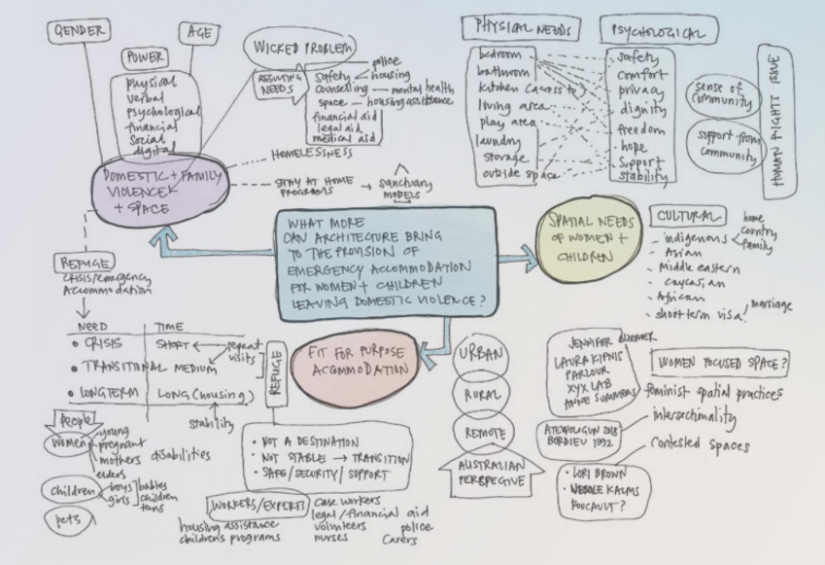 GENDER
AGE
POWER
physical
verbal
psychological
financial
social
digital
DOMESTIC + FAMILY
VIOLENCE
+ SPACE
WICKED PROBLEM
RESULTING
NEEDS
police
safety
housing
counselling — mental health
space — housing assistance
financial aid
legal aid
medical aid
HOMELESSNESS
STAY AT HOME
PROGRAMS
sanctuary
MODELS
PHYSICAL NEEDS
bedroom
bathroom
kitchen (access to)
living area
play area
laundry
storage
outside space
PSYCHOLOGICAL
safety
comfort
privacy
dignity
freedom
hope
support
stability
sense of
community
support from
community
HUMAN RIGHT ISSUE
WHAT MORE
CAN ARCHITECTURE BRING
TO THE PROVISION OF
EMERGENCY ACCOMMODATION
FOR WOMEN + CHILDREN
LEAVING DOMESTIC VIOLENCE?
SPATIAL NEEDS
OF WOMEN +
CHILDREN
CULTURAL
- indigenous
home
country
family
- Asian
- Middle eastern
- caucasian
- African
- short term visa
marriage
REFUGE
crisis/emergency
Accommodation
NEED
TIME
• CRISIS
SHORT
repeat
visits
• TRANSITIONAL
MEDIUM
• LONGTERM
LONG (housing)
stability
REFUGE
FIT FOR PURPOSE
ACCOMMODATION
People
women
young
pregnant
mothers
elders
disabilities
children
boys
girls
babies
children
teens
pets
• NOT A DESTINATION
• NOT STABLE → TRANSITION
• SAFE/SECURITY/SUPPORT
WORKERS/EXPERTS
housing assistance
children's programs
case workers
legal/financial aid
volunteers
nurses
police
carers
URBAN
RURAL
REMOTE
AUSTRALIAN
PERSPECTIVE
JENNIFER
LAURA KIPNIS
PARLOUR
XYX LAB
ANNE SUMMERS
BORDIEU 1992
• LORI BROWN
KALMS
FOUCAULT?
WOMEN FOCUSED SPACE?
feminist spatial practices
intersectionality
Contested spaces